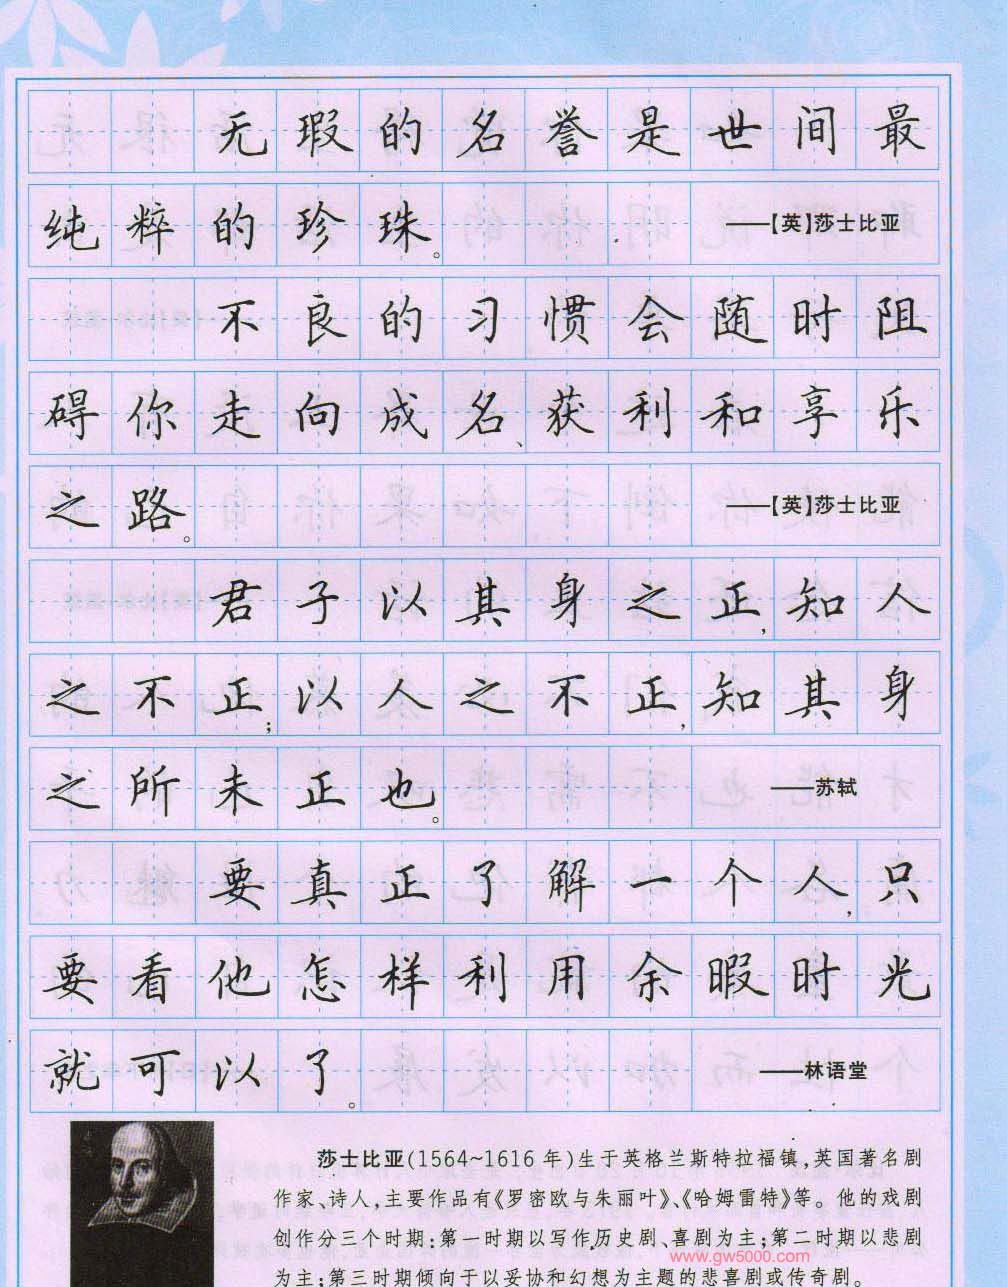 无瑕的名誉是世间最
纯粹的珍珠。 ——【英】莎士比亚
不良的习惯会随时阻
碍你走向成名、获利和享乐
之路。 ——【英】莎士比亚
君子以其身之正,知人
之不正;以人之不正,知其身
之所未正也。 ——苏轼
要真正了解一个人,只
要看他怎样利用余暇时光
就可以了。 ——林语堂
莎士比亚(1564~1616年)生于英格兰斯特拉福镇,英国著名剧
作家、诗人,主要作品有《罗密欧与朱丽叶》、《哈姆雷特》等。他的戏剧
创作分三个时期:第一时期以写作历史剧、喜剧为主;第二时期以悲剧
www.gw5000.com
为主;第三时期倾向于以妥协和幻想为主题的悲喜剧或传奇剧。